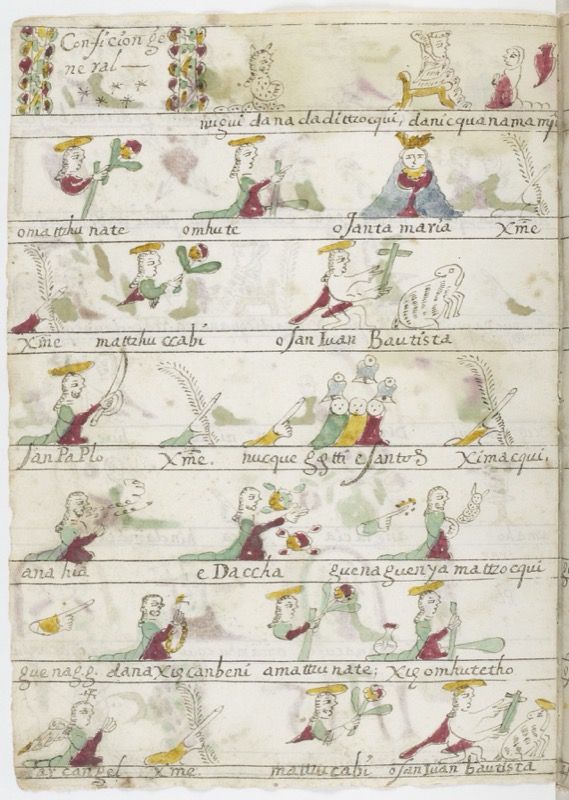 Confiçion ge
neral —
nugui danadadittzocqui, danicquanamami
omattzhu nate omhute o Santa maria Xm̃e
Xm̃e mattzhu ccabi o San Iuan Bautista
San Pa Plo Xm̃e. nucque ggtti e Santos Ximacqui,
ana hia e Daccha guenaguenya mattzocqui
guenagg. danaxigcanbeni amattunate; xigomhutetho
arcangel Xm̃e. mattucabi o San Iuan bautista